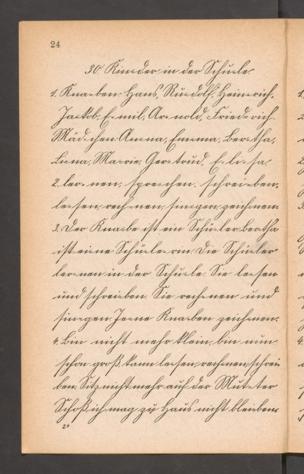 24
30 Kinder in der Schule.
1. Kna-ben: Hans, Rudolf, Heinrich,
Jakob, E-mil, Ar-nold, Friedrich.
Mäd-chen: An-na, Emma, Ber-tha,
Li-na, Ma-rie, Ger-trud, E-li-sa.
2. ler-nen, spre-chen, schrei-ben,
le-sen, rech-nen, sin-gen, zeichnen.
3. Der Kna-be ist ein Schü-ler. Ber-tha
ist ei-ne Schü-le-rin. Die Schü-ler
ler-nen in der Schu-le. Sie le-sen
und schrei-ben. Sie rech-nen und
sin-gen. Je-ne Kna-ben zeichnen.
4. Bin nicht mehr klein, bin nun
schon groß, kann lesen, rechnen, schrei
ben. Sitz nicht mehr auf der Mut-ter
Schoß, ich mag zu Haus nicht bleiben.